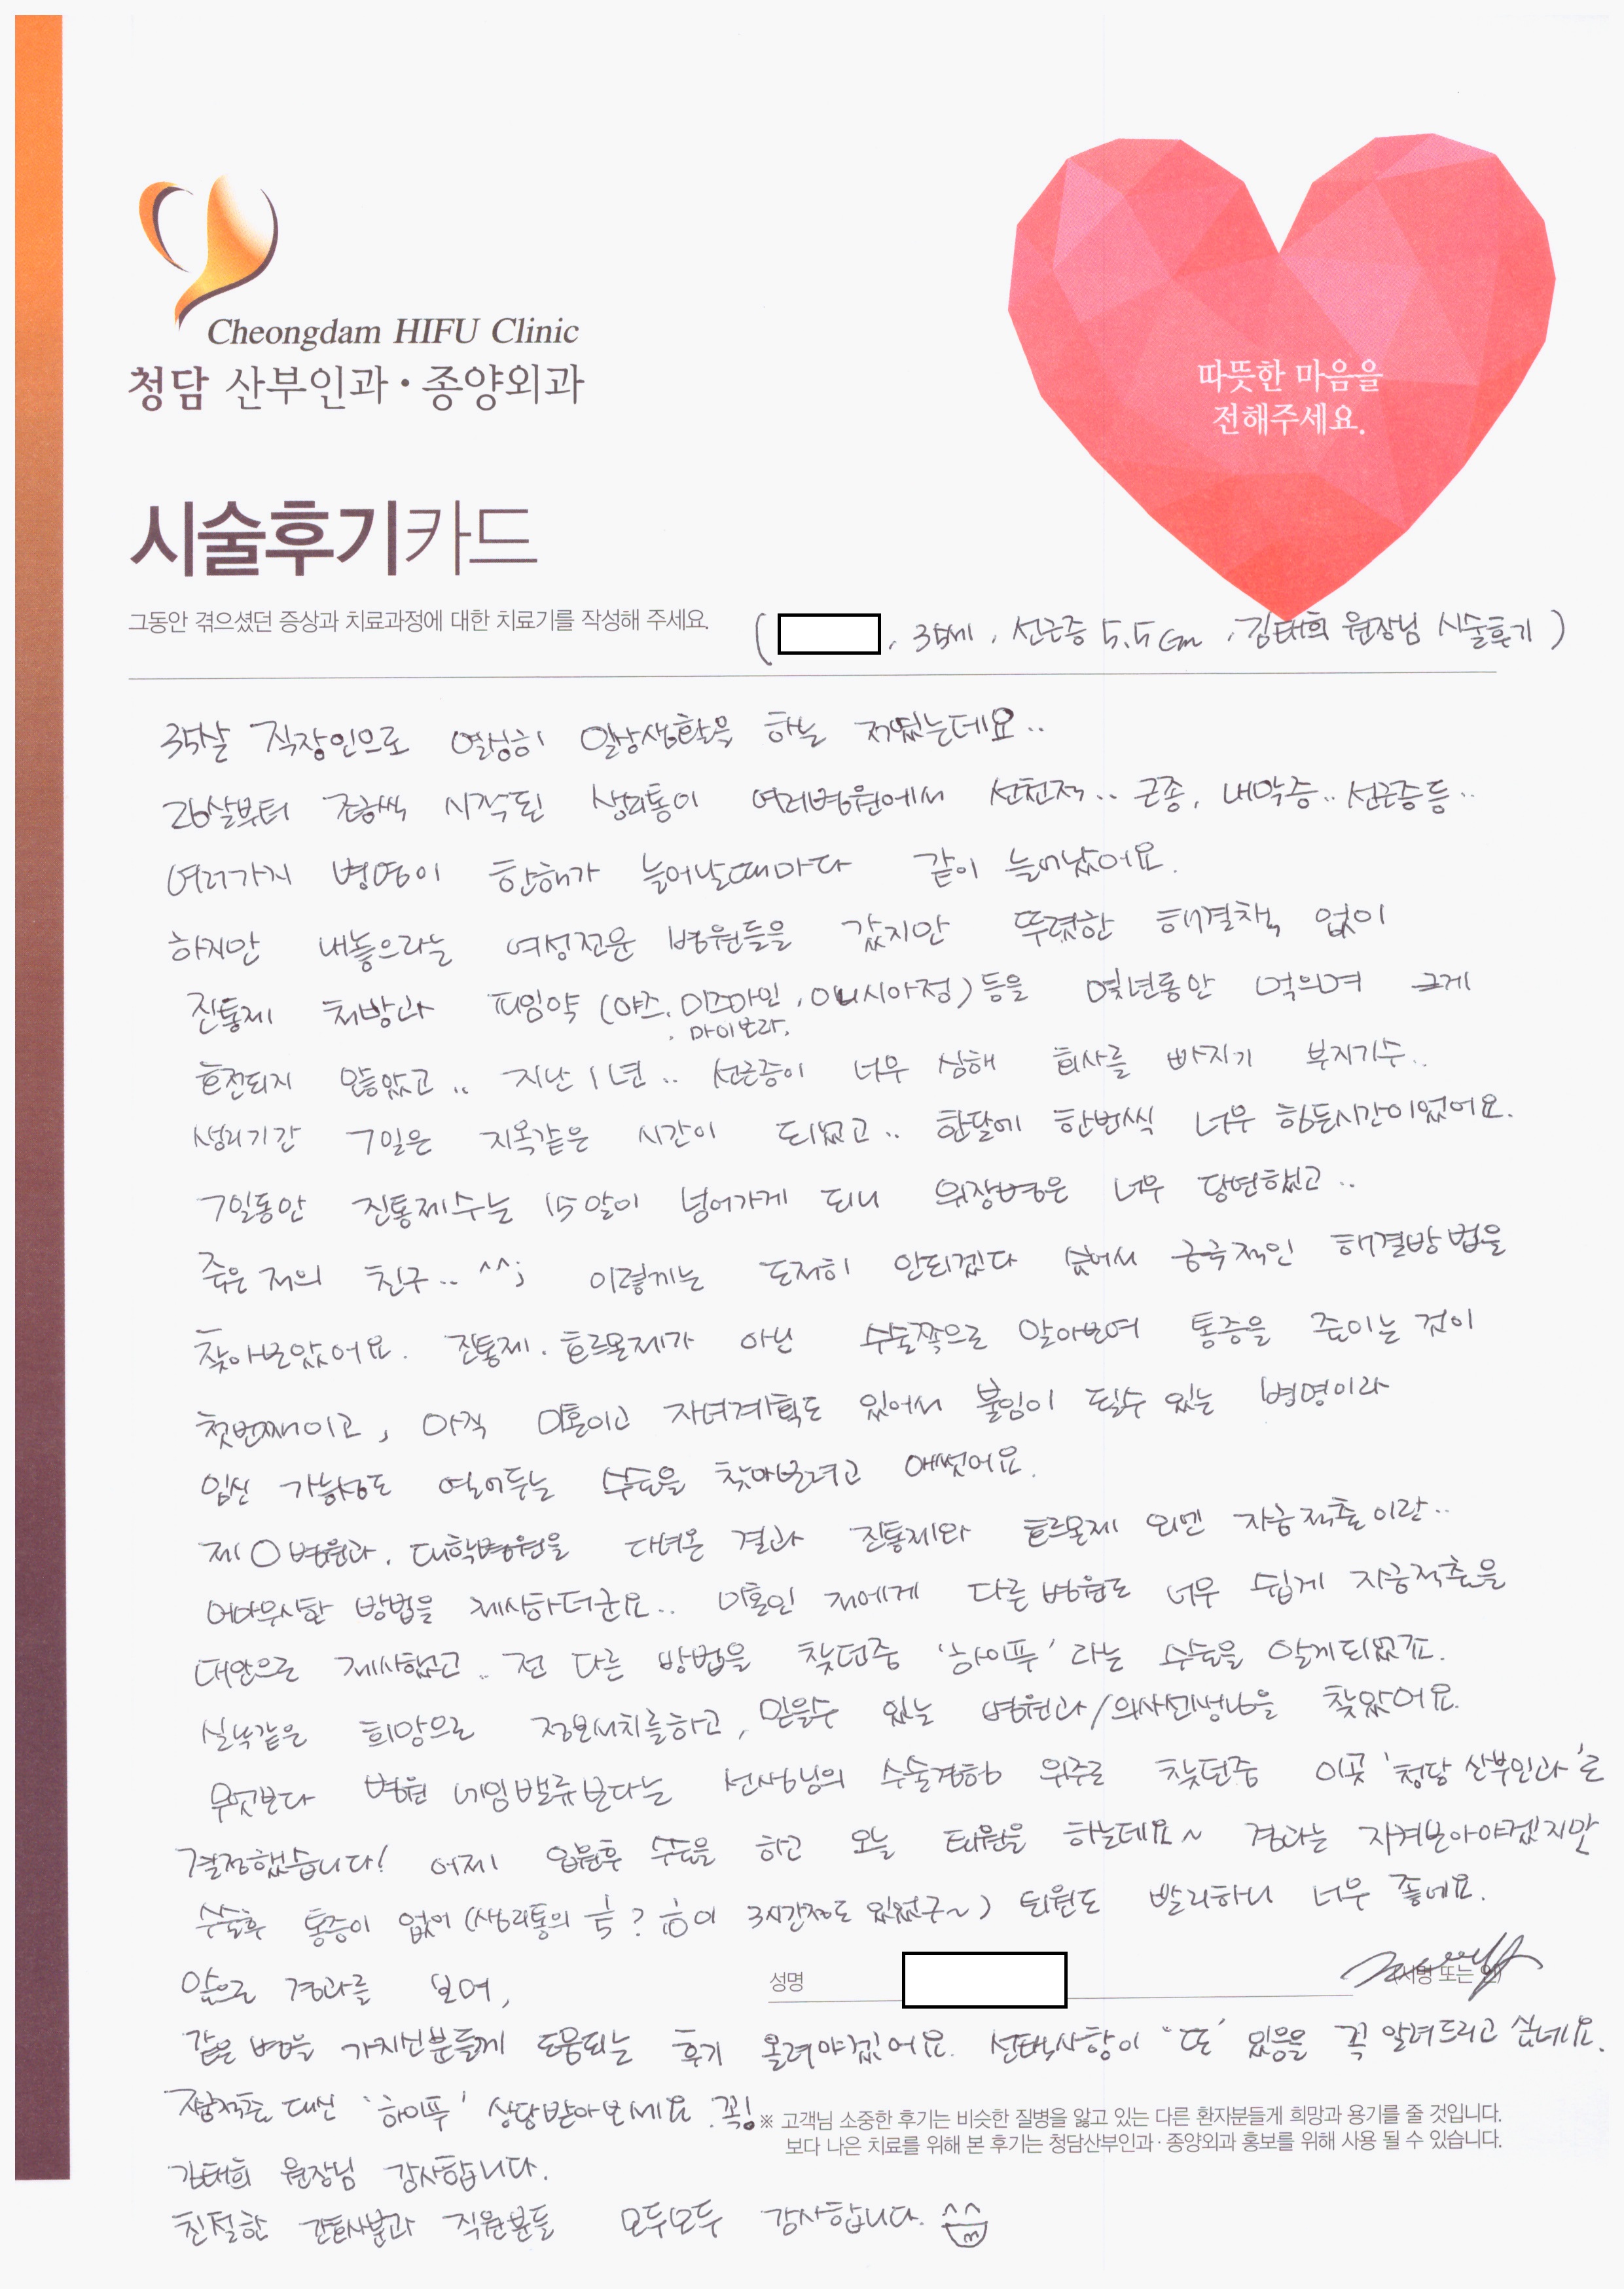 Cheongdam HIFU Clinic
청담 산부인과·종양외과
따뜻한 마음을
전해주세요.
시술후기카드
그동안 겪으셨던 증상과 치료과정에 대한 치료기를 작성해 주세요.
( , 35세, 선근증 5.5cm, 김태희 원장님 시술후기)
35살 직장인으로 열심히 일상생활을 하는 저였는데요..
26살부터 조금씩 시작된 생리통이 여러병원에서 선천적.. 근종, 내막증.. 선근증등..
여러가지 병명이 한해가 늘어날때마다 같이 늘어났어요.
하지만 내놓으라는 여성전문 병원들을 갔지만 뚜렷한 해결책 없이
진통제 처방과 피임약 (야즈, 미즈마인, 야니시아정) 등을 몇년동안 먹으며 크게
, 마이보라,
호전되지 않았고.. 지난 1년.. 선근증이 너무 심해 회사를 빠지기 부지기수..
생리기간 7일은 지옥같은 시간이 되었고.. 한달에 한번씩 너무 힘든시간이었어요.
7일동안 진통제수는 15알이 넘어가게 되니 위장병은 너무 당연했고..
죽은 저의 친구.. ^^; 이렇게는 도저히 안되겠다 싶어서 궁극적인 해결방법을
찾아보았어요. 진통제. 호르몬제가 아닌 수술쪽으로 알아보며 통증을 줄이는 것이
첫번째이고, 아직 미혼이고 자녀계획도 있어서 불임이 될수 있는 병명이라
임신 가능성도 열어두는 수술을 찾아보려고 애썼어요.
제○병원과. 대학병원을 다녀온 결과 진통제와 호르몬제 외엔 자궁적출이란..
어마무시한 방법을 제시하더군요.. 미혼인 저에게 다른병원도 너무 쉽게 자궁적출을
대안으로 제시했고.. 전 다른 방법을 찾던중 '하이푸'라는 수술을 알게되었죠.
실낱같은 희망으로 정보서치를하고, 믿을수 있는 병원과/의사선생님을 찾았어요.
무엇보다 병원 네임밸류보다는 선생님의 수술경험 위주로 찾던중 이곳 '청담 산부인과'로
결정했습니다! 어제 입원후 수술을 하고 오늘 퇴원을 하는데요~ 경과는 지켜보아야겠지만
수술후 통증이 없어 (생리통의 1/5? 1/10이 3시간정도 있었구~) 퇴원도 빨리하니 너무 좋네요.
앞으로 경과를 보며,
성명 (서명 또는 인)
같은 병을 가지신분들께 도움되는 후기 올려야겠어요. 선택사항이 "또" 있음을 꼭 알려드리고 싶네요.
자궁적출 대신 '하이푸' 상담받아보세요. 꼭!
※ 고객님 소중한 후기는 비슷한 질병을 앓고 있는 다른 환자분들게 희망과 용기를 줄 것입니다.
보다 나은 치료를 위해 본 후기는 청담산부인과·종양외과 홍보를 위해 사용 될 수 있습니다.
김태희 원장님 감사합니다.
친절한 간호사분과 직원분들 모두모두 감사합니다. ^^